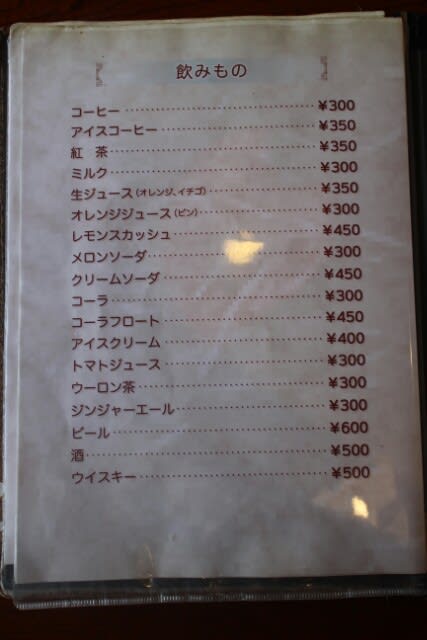 飲みもの
コーヒー ¥300
アイスコーヒー ¥350
紅 茶 ¥350
ミルク ¥300
生ジュース(オレンジ、イチゴ) ¥350
オレンジジュース(ビン) ¥300
レモンスカッシュ ¥450
メロンソーダ ¥300
クリームソーダ ¥450
コーラ ¥300
コーラフロート ¥450
アイスクリーム ¥400
トマトジュース ¥300
ウーロン茶 ¥300
ジンジャーエール ¥300
ビール ¥600
酒 ¥500
ウイスキー ¥500